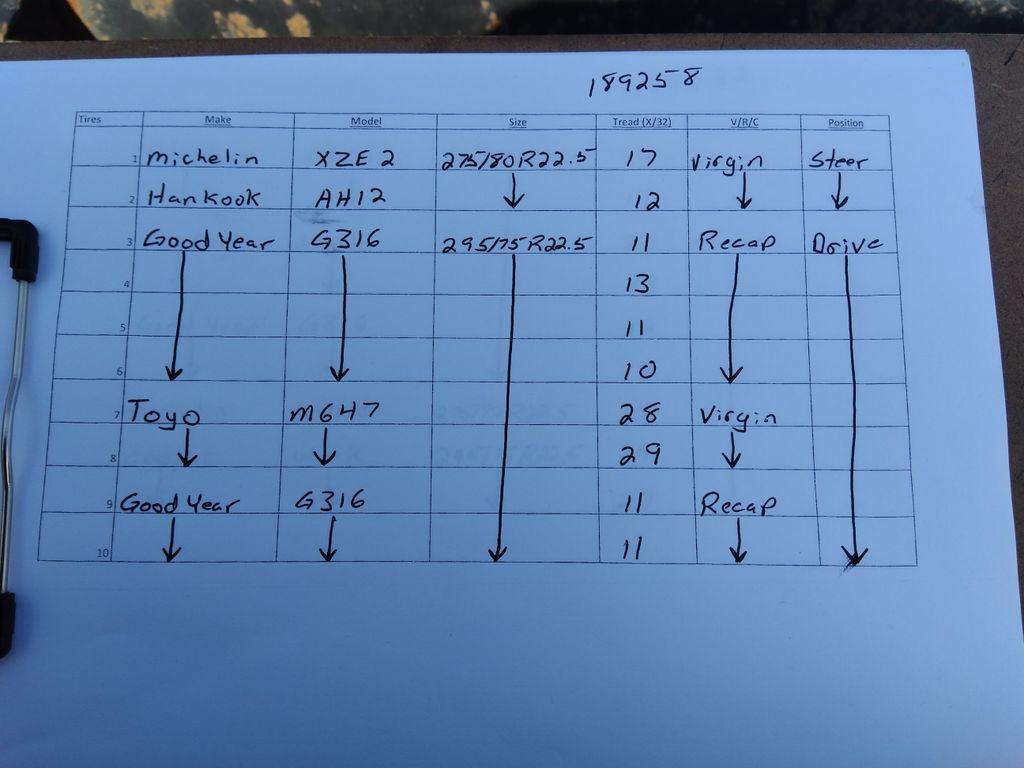 189258
Tires Make Model Size Tread (X/32) V/R/C Position
1 Michelin XZE 2 275/80R22.5 17 Virgin Steer
2 Hankook AH12 ↓ 12 ↓ ↓
3 Good Year G316 295/75R22.5 11 Recap Drive
4 13
5 11
6 10
7 Toyo M647 28 Virgin
8 29
9 Good Year G316 11 Recap
10 11